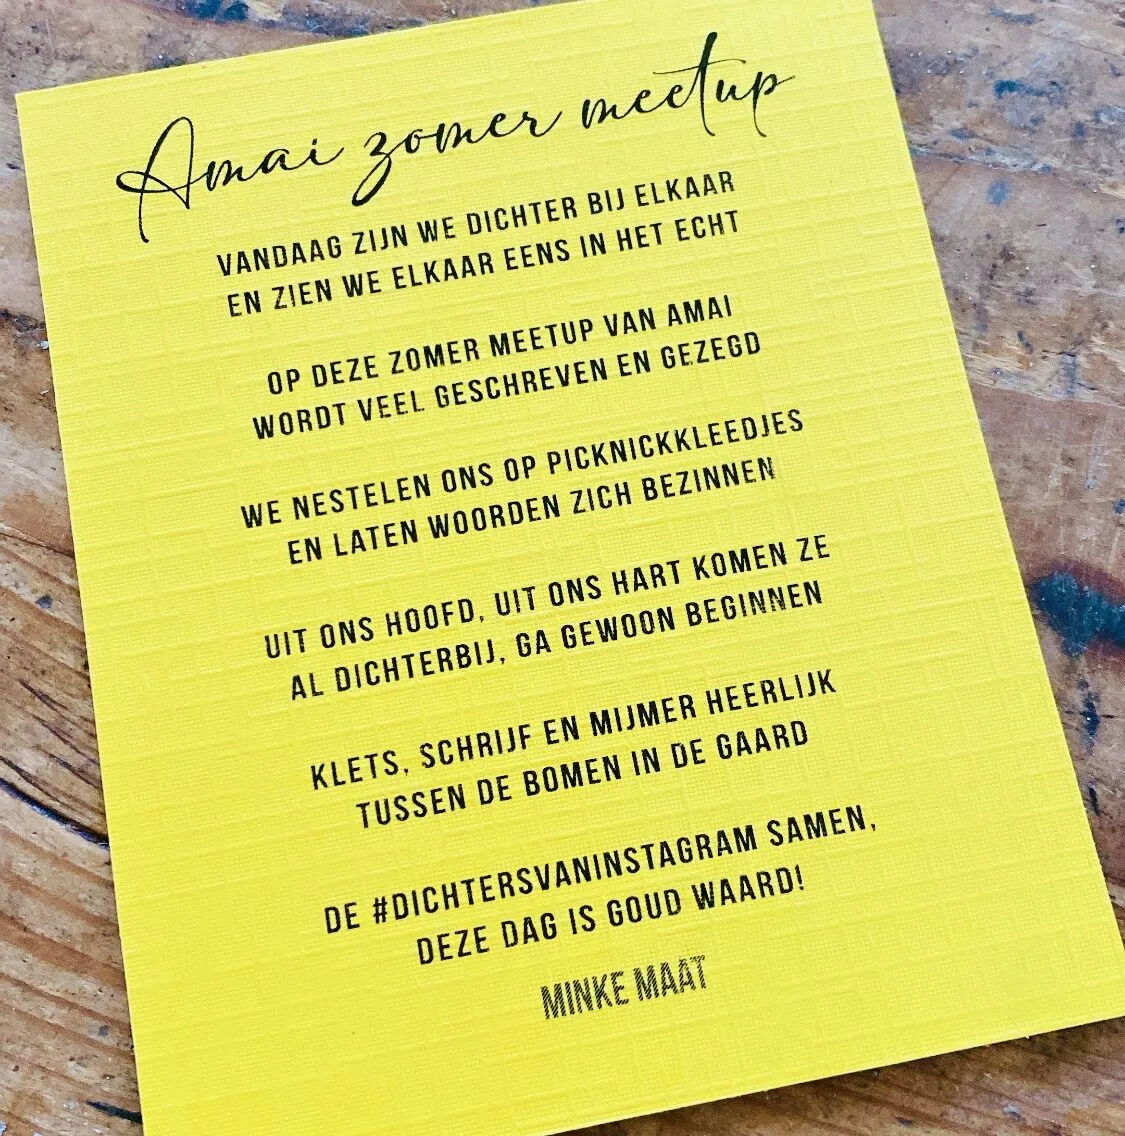 Amai zomer meetup
VANDAAG ZIJN WE DICHTER BIJ ELKAAR
EN ZIEN WE ELKAAR EENS IN HET ECHT
OP DEZE ZOMER MEETUP VAN AMAI
WORDT VEEL GESCHREVEN EN GEZEGD
WE NESTELEN ONS OP PICKNICKKLEEDJES
EN LATEN WOORDEN ZICH BEZINNEN
UIT ONS HOOFD, UIT ONS HART KOMEN ZE
AL DICHTERBIJ, GA GEWOON BEGINNEN
KLETS, SCHRIJF EN MIJMER HEERLIJK
TUSSEN DE BOMEN IN DE GAARD
DE #DICHTERSVANINSTAGRAM SAMEN,
DEZE DAG IS GOUD WAARD!
MINKE MAAT